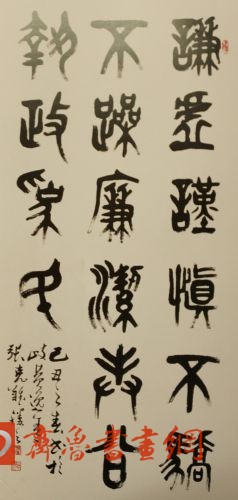 謙虛謹慎不驕
不躁廉潔奉公
執政為民
己丑之春
魯書畫網